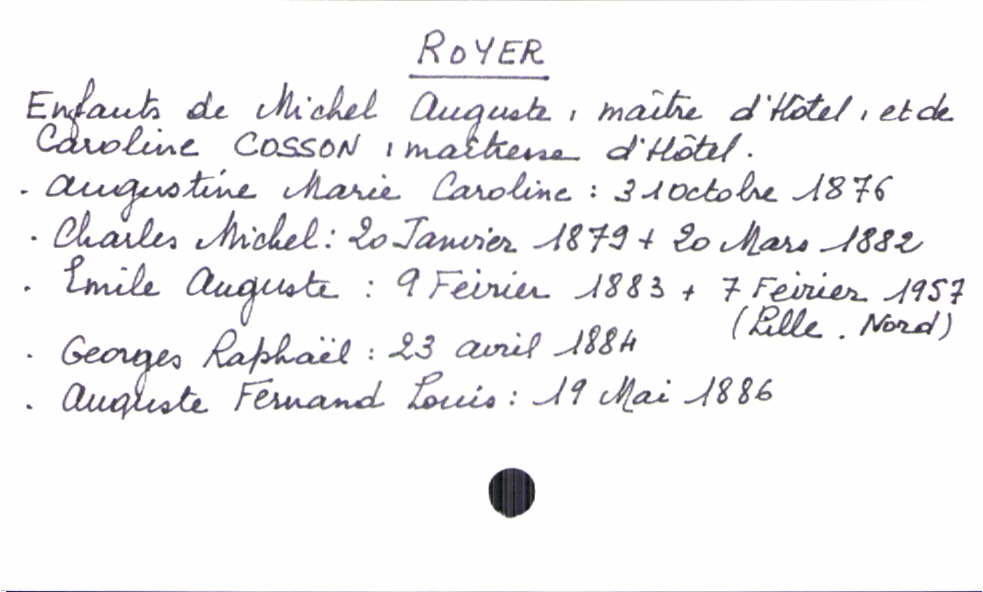 ROYER
Enfants de Michel Auguste, maître d'Hôtel, et de
Caroline COSSON, maîtresse d'Hôtel.
. Augustine Marie Caroline : 31 octobre 1876
. Charles Michel : 20 Janvier 1879 + 20 Mars 1882
. Emile Auguste : 9 Février 1883 + 7 Février 1957
(Lille. Nord)
. Georges Raphaël : 23 avril 1884
. Auguste Fernand Louis : 19 Mai 1886